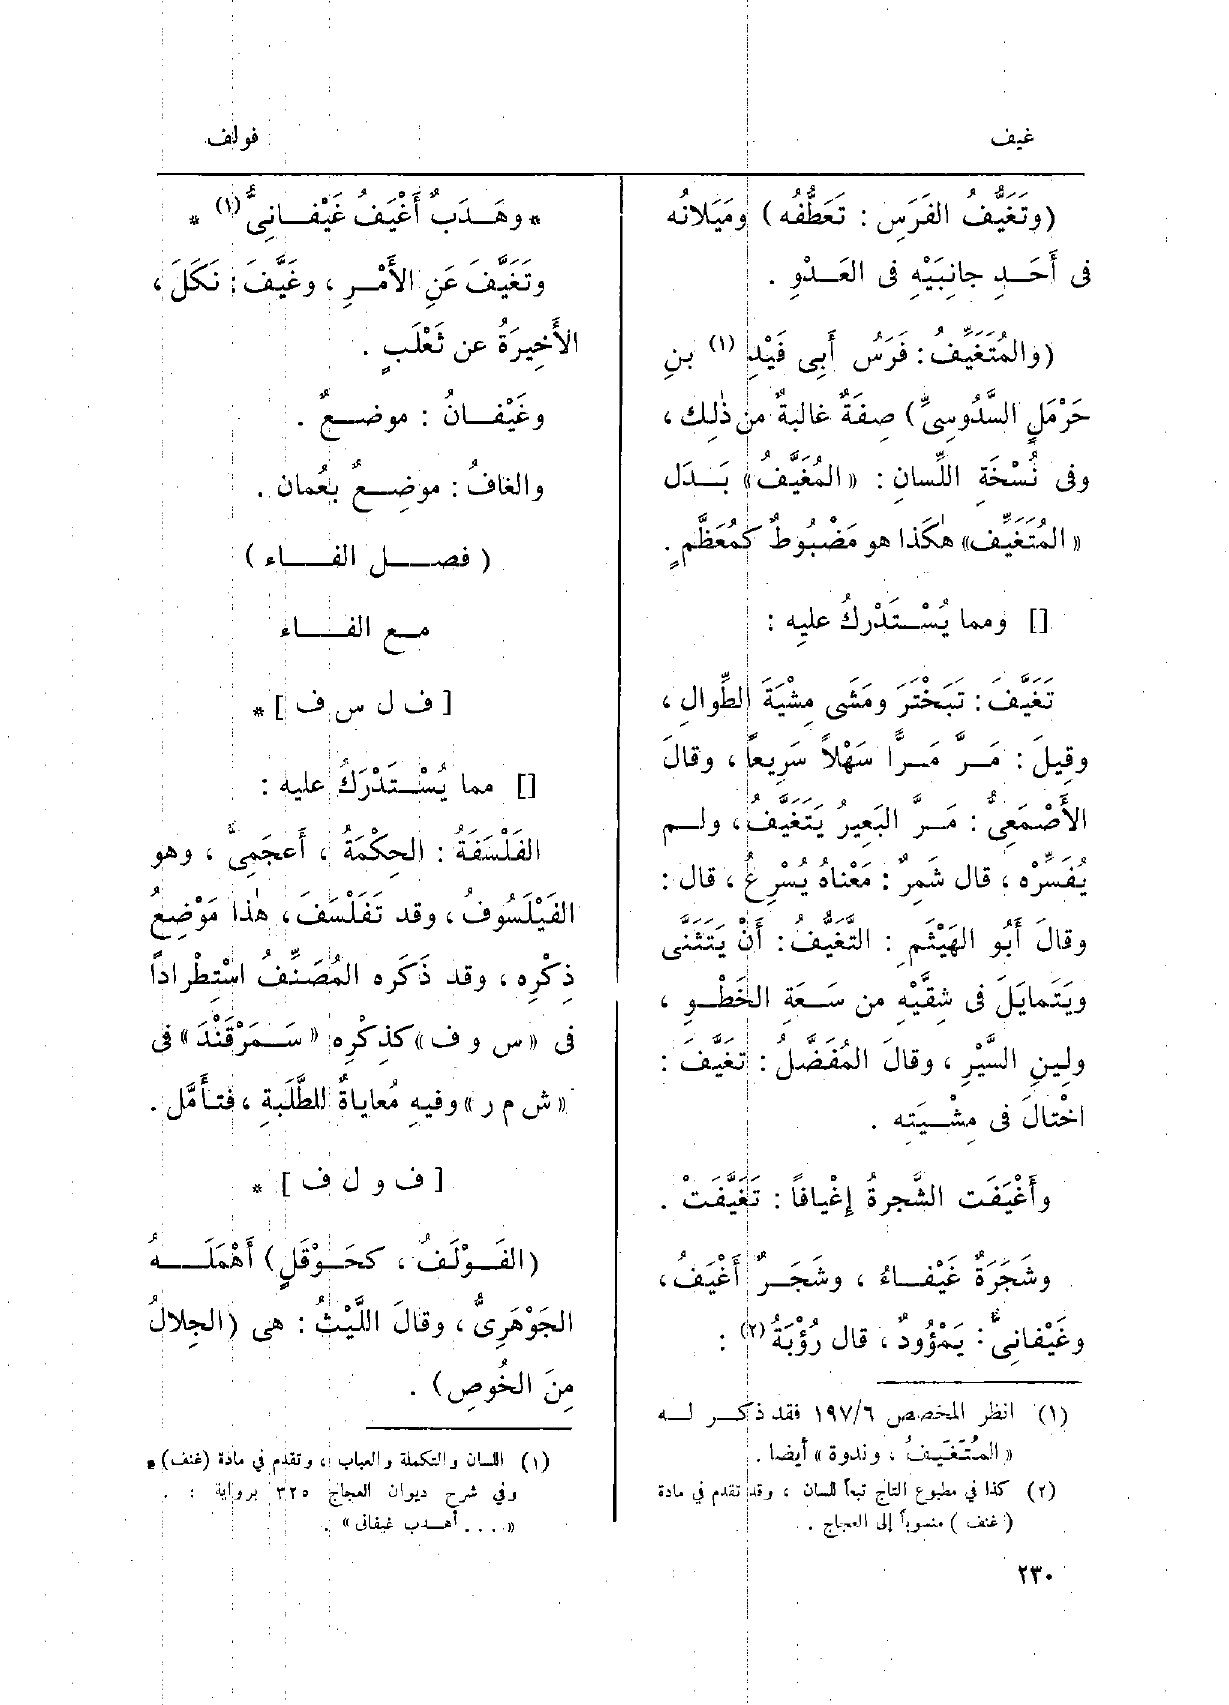 غيف
فولف
(وتَغَيُّفُ الفَرَسِ : تَعَطُّفُه) ومَيَلانُه
فى أَحَدِ جانِبَيْهِ فى العَدْوِ .
(والمُتَغَيِّفُ : فَرَسُ أَبِى فَيْدِ (١) بنِ
حَرْمَلٍ السَّدُوسِىِّ) صِفَةٌ غالبةٌ من ذٰلِك ،
وفى نُسْخَةِ اللِّسانِ : «المُغَيَّفُ» بَدَل
«المُتَغَيِّف» هٰكَذا هو مَضْبُوطٌ كمُعَظَّمٍ .
[] ومما يُسْتَدْرَكُ عليهِ :
تَغَيَّفَ : تَبَخْتَرَ ومَشَى مِشْيَةَ الطِّوالِ ،
وقِيلَ : مَرَّ مَرًّا سَهْلاً سَرِيعاً ، وقالَ
الأَصْمَعِىُّ : مَرَّ البَعِيرُ يَتَغَيَّفُ ، ولم
يُفَسِّرْه ، قال شَمِرٌ : مَعْناهُ يُسْرِعُ ، قال :
وقالَ أَبُو الهَيْثَمِ : التَّغَيُّفُ : أَنْ يَتَثَنَّى
ويَتَمايَلَ فى شِقَّيْهِ من سَعَةِ الخَطْوِ ،
ولِينِ السَّيْرِ ، وقالَ المُفَضَّلُ : تَغَيَّفَ :
اخْتالَ فى مِشْيَتِه .
وأَغْيَفَت الشَّجرةُ إِغْيافاً : تَغَيَّفَتْ .
وشَجَرَةٌ غَيْفاءُ ، وشَجَرٌ أَغْيَفُ ،
وغَيْفانِىٌّ : يَمْؤُودٌ ، قال رُؤْبَةُ (٢) :
(١) انظر المخصص ١٩٧/٦ فقد ذكر له
«المُتَغَيِّفُ ، وندوة» أيضا .
(٢) كذا في مطبوع التاج تبعاً للسان ، وقد تقدم في مادة
(غنف) منسوباً إلى العجاج .
*وهَدَبٌ أَغْيَفُ غَيْفانِىُّ (١) *
وتَغَيَّفَ عَنِ الأَمْرِ ، وغَيَّفَ : نَكَلَ ،
الأَخِيرَةُ عن ثَعْلَبٍ .
وغَيْفانُ : موضعٌ .
والغافُ : موضِعٌ بعُمان .
( فصل الفاء )
مع الفاء
[ ف ل س ف ] *
[] مما يُسْتَدْرَكُ عليه :
الفَلْسَفَةُ : الحِكْمَةُ ، أَعجَمِىٌّ ، وهو
الفَيْلَسُوفُ ، وقد تَفَلْسَفَ ، هٰذا مَوْضِعُ
ذِكْرِه ، وقد ذَكَره المُصَنِّفُ اسْتِطْراداً
فى «س و ف» كذِكْرِه «سَمَرْقَنْدَ» فى
«ش م ر» وفيهِ مُعاياةٌ للطَّلَبةِ ، فتأَمَّل .
[ ف و ل ف ] *
(الفَوْلَفُ ، كحَوْقَلٍ) أَهْمَلَهُ
الجَوْهَرِىُّ ، وقالَ اللَّيْثُ : هى (الجِلالُ
مِنَ الخُوصِ) .
(١) اللسان والتكملة والعباب ، وتقدم في مادة (غنف) .
وفي شرح ديوان العجاج ٣٢٥ برواية :
«.... أهدب غيفانى» .
٢٣٠